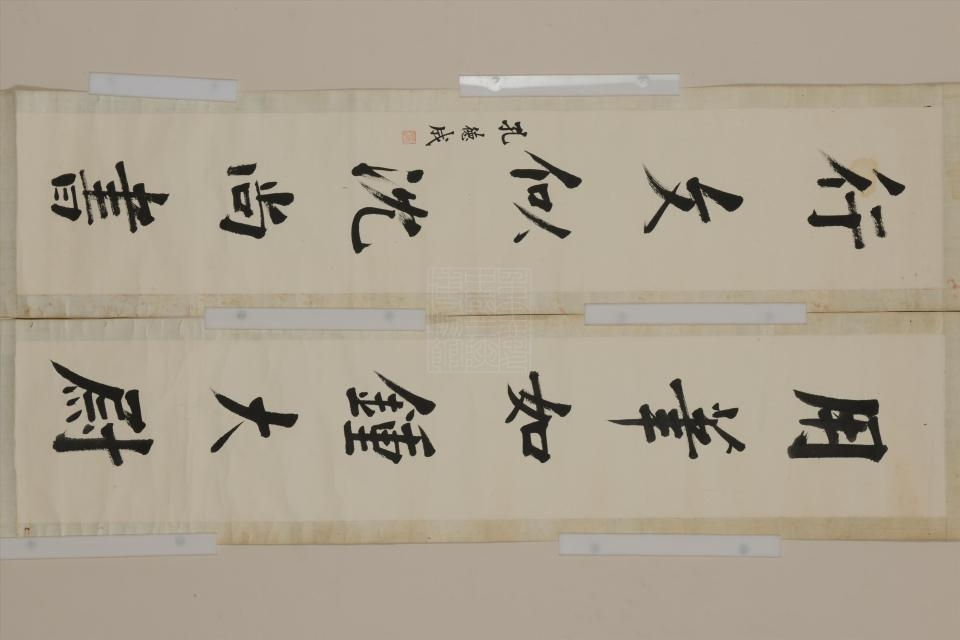 用筆如鍾太尉
行文似沈尚書
孔德成